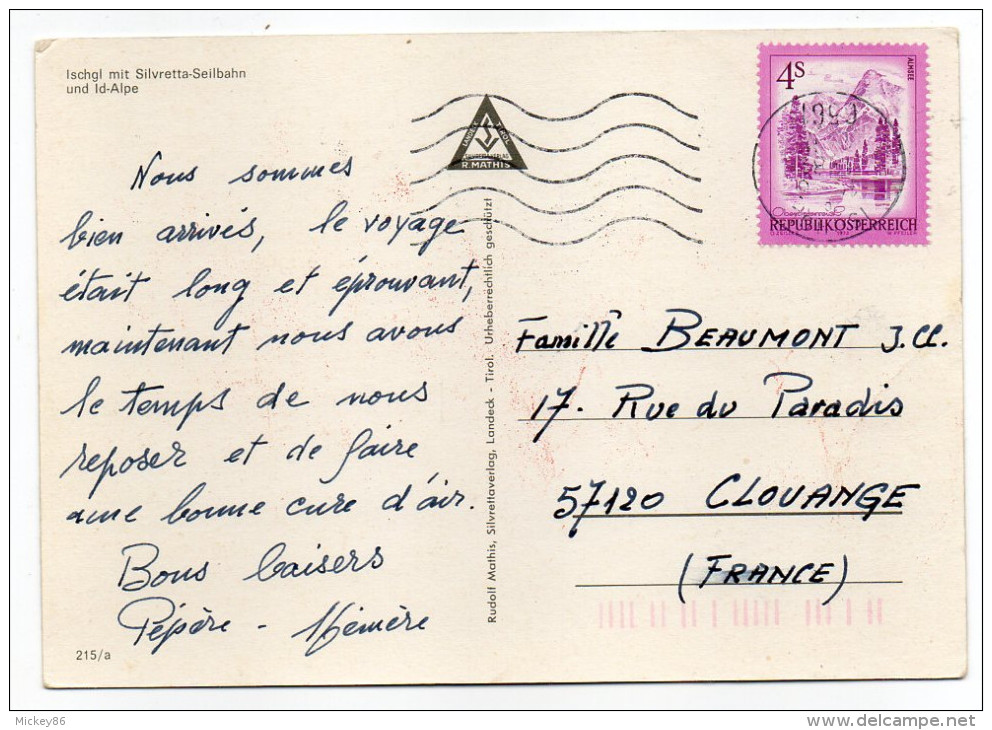 Ischgl mit Silvretta-Seilbahn
und Id-Alpe
Nous sommes
bien arrivés, le voyage
était long et éprouvant,
maintenant nous avons
le temps de nous
reposer et de faire
une bonne cure d'air.
Bons baisers
Pépère - Mémère
215/a
R. MATHIS
Rudolf Mathis, Silvrettaverlag, Landeck - Tirol. Urheberrechtlich geschützt
4S
ALMSEE
REPUBLIK ÖSTERREICH
Famille BEAUMONT J.Cl.
17. Rue du Paradis
57120 CLOUANGE
(FRANCE)
Mickey86
delcampe.net